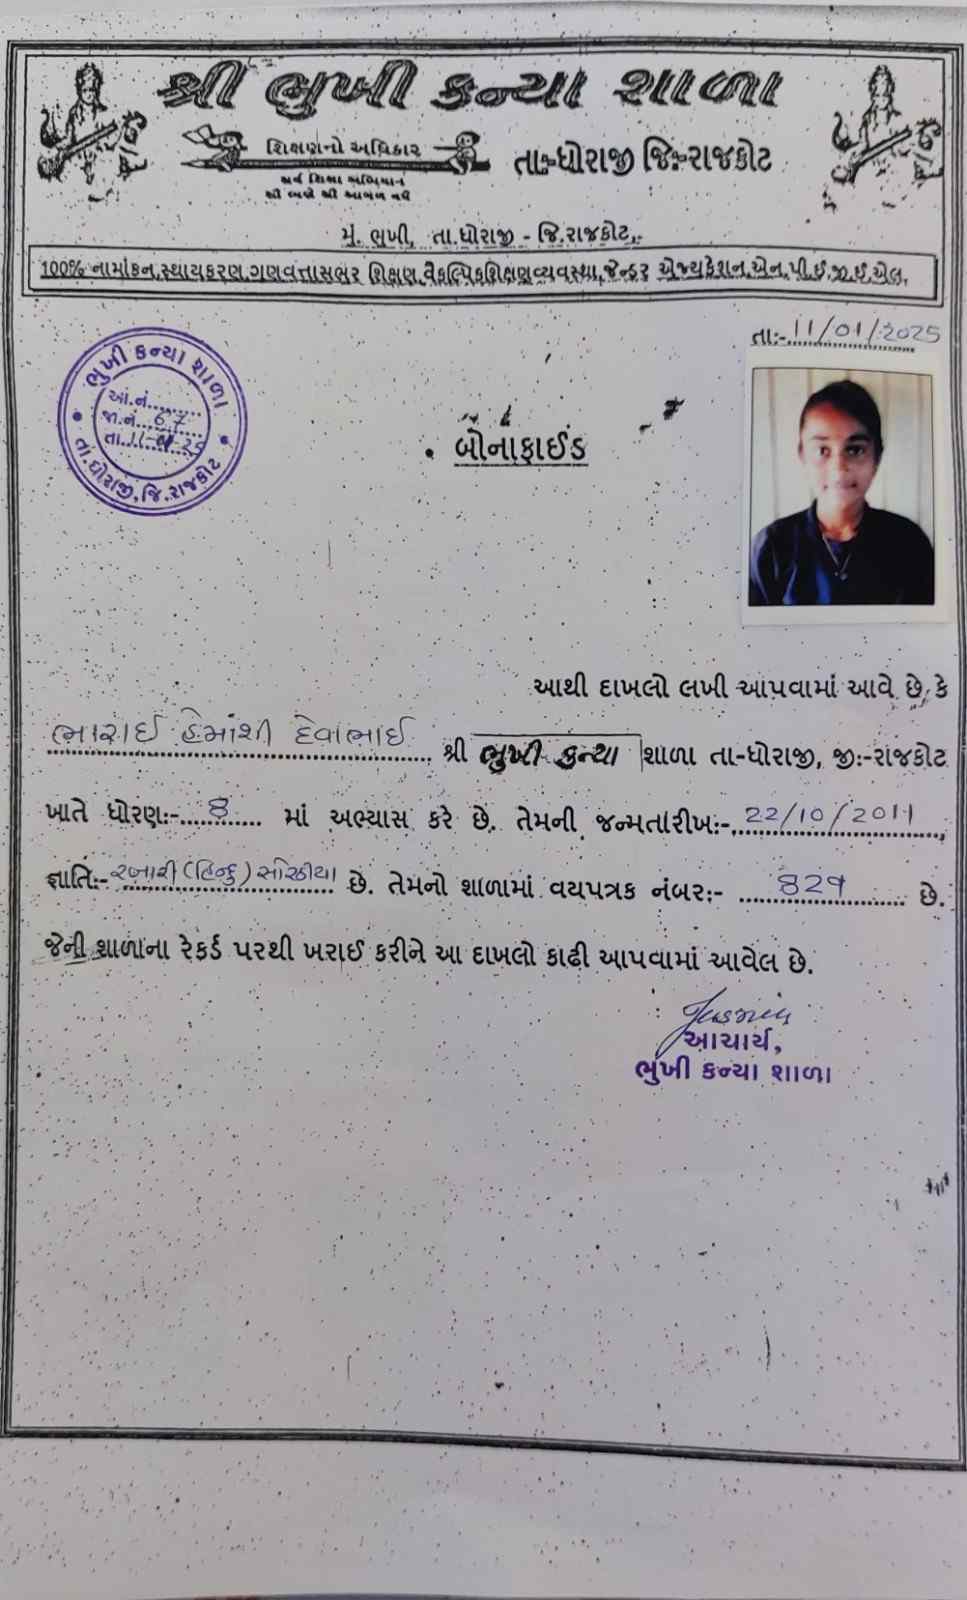 શ્રી ભુખી કન્યા શાળા
શિક્ષણનો અધિકાર
સર્વ શિક્ષા અભિયાન
સૌ ભણે સૌ આગળ વધે
તાઃ-ધોરાજી જિઃ-રાજકોટ
મું. ભુખી, તા.ધોરાજી - જિ.રાજકોટ,.
100% નામાંકન,સ્થાયકરણ,ગુણવત્તાસભર શિક્ષણ,વૈકલ્પિકશિક્ષણવ્યવસ્થા,જેન્ડર એજ્યુકેશન,એન.પી.ઈ.જી.ઈ.એલ.
તાઃ- 11/01/2025
ભુખી કન્યા શાળા
આં.નં.
જા.નં. 67
તા.
તા.ધોરાજી, જિ.રાજકોટ
બોનાફાઈડ
આથી દાખલો લખી આપવામાં આવે છે કે
ભારાઈ હેમાંશી દેવાભાઈ શ્રી ભુખી કન્યા શાળા તા-ધોરાજી, જીઃ-રાજકોટ
ખાતે ધોરણઃ- 8 માં અભ્યાસ કરે છે. તેમની જન્મતારીખઃ- 22/10/2011
જ્ઞાતિઃ- રબારી (હિન્દુ) સોરઠીયા છે. તેમનો શાળામાં વયપત્રક નંબરઃ- 829 છે.
જેની શાળાના રેકર્ડ પરથી ખરાઈ કરીને આ દાખલો કાઢી આપવામાં આવેલ છે.
આચાર્ય,
ભુખી કન્યા શાળા